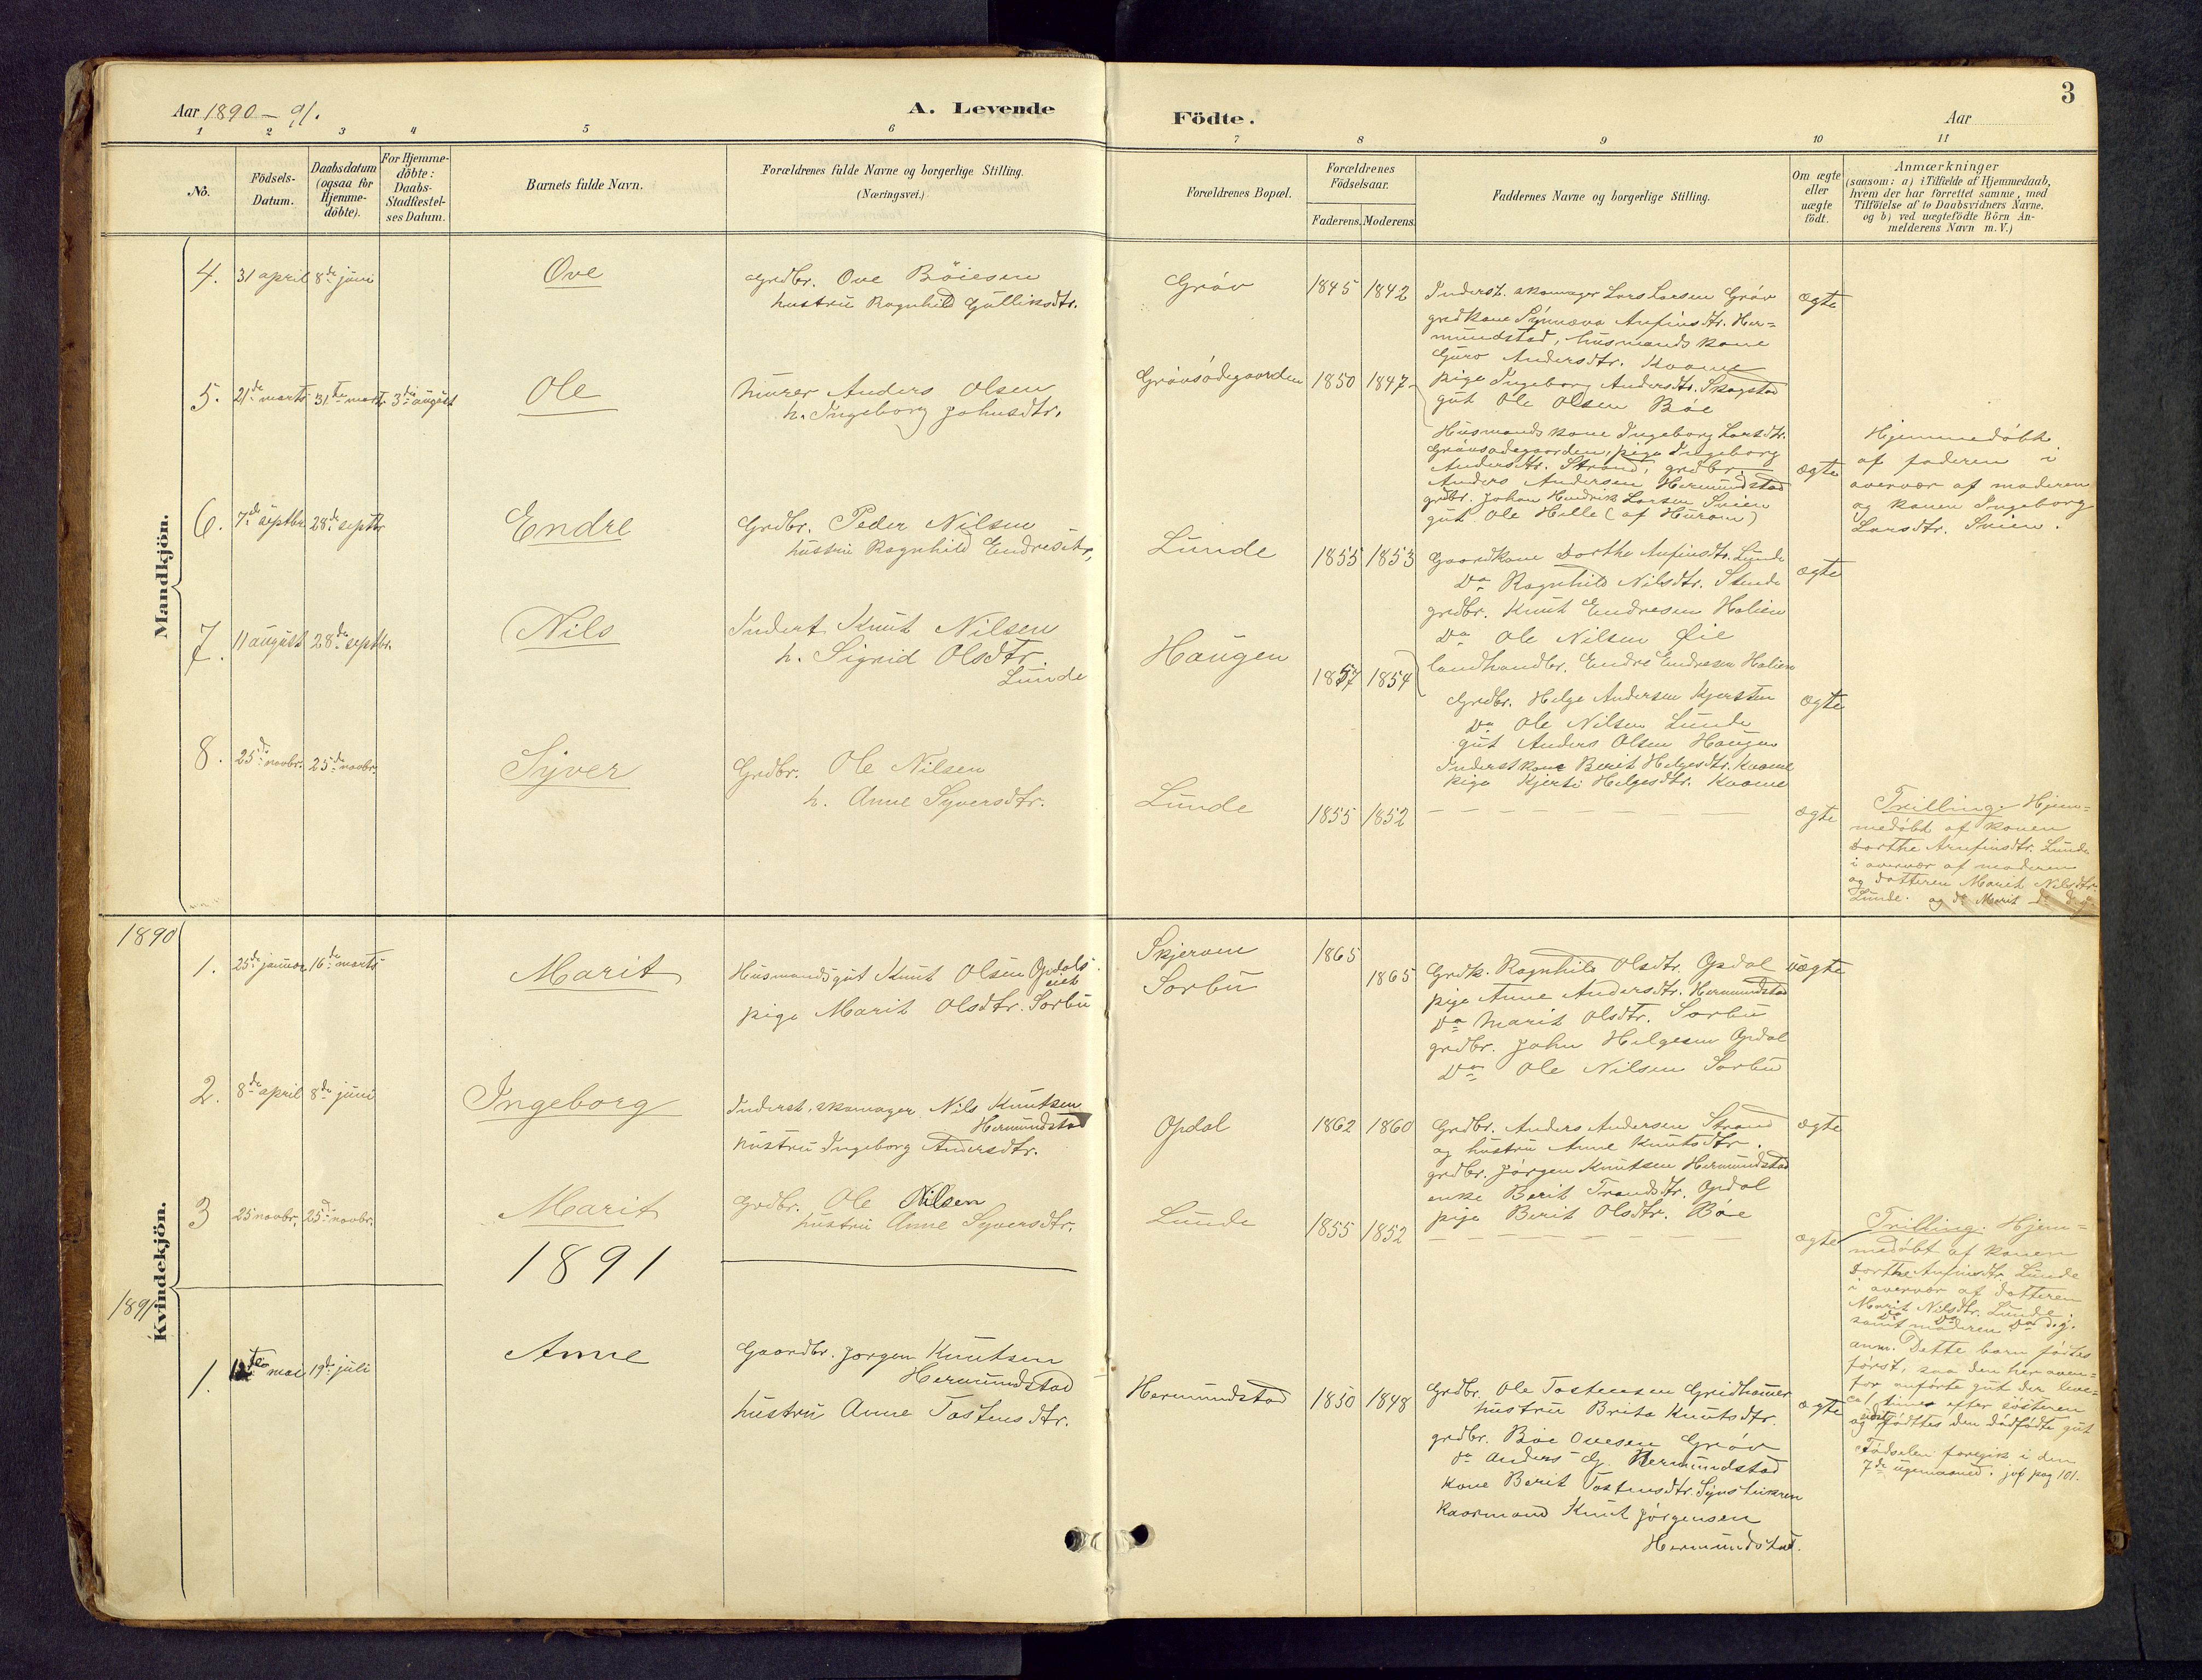 3
Aar 1890 – 91.
A. Levende
Födte.
Aar
1 2 3 4 5 6 7 8 9 10 11
No.
Födsels-
Datum.
Daabsdatum
(ogsaa for
Hjemme-
döbte).
For Hjemme-
döbte:
Daabs-
Stadfæstel-
ses Datum.
Barnets fulde Navn.
Forældrenes fulde Navne og borgerlige Stilling.
(Næringsvei.)
Forældrenes Bopæl.
Forældrenes
Födselsaar.
Faderens.
Moderens.
Faddernes Navne og borgerlige Stilling.
Om ægte
eller
uægte
födt.
Anmærkninger
(saasom: a) i Tilfælde af Hjemmedaab,
hvem der har forrettet samme, med
Tilföielse af to Daabsvidners Navne,
og b) ved uægtefödte Börn An-
melderens Navn m. V.)
Mandkjön.
4. 31 april 8de juni
Ove
Grdbr. Ove Böiesen
hustru Ragnhild Gulliksdtr.
Gröv
1845 1842
Inderst. skomager Lars Larsen Gröv
grdkone Synnæva Anfinsdtr. Her-
mundstad, husmandskone
Guro Andersdtr. Kvame
pige Ingeborg Andersdtr. Skogstad
gut Ole Olsen Böe
ægte
5. 21de marts 31te marts 3de august
Ole
Murer Anders Olsen
h. Ingeborg Johnsdtr.
Grövsödegaarden
1850 1847
Husmandskone Ingeborg Larsdtr.
Grövsödegaarden, pige Ingeborg
Andersdtr. Strand, grdbr.
Anders Andersen Hermundstad
grdbr. Johan Hendrik Larsen Svien
gut Ole Hille (af Hurum)
ægte
Hjemmedöbt
af faderen i
overvær af moderen
og konen Ingeborg
Larsdtr. Svien.
6. 7de septbr. 28de septbr
Endre
Grdbr. Peder Nilsen
hustru Ragnhild Endresdtr,
Lunde
1855 1853
Gaardkone Dorthe Anfinsdtr. Lunde
Do Ragnhild Nilsdtr. Stende
grdbr. Knut Endresen Halien
Do Ole Nilsen Öie
landhandbr. Endre Endresen Halien
ægte
7. 11 august 28de septbr.
Nils
Inderst Knut Nilsen
h. Sigrid Olsdtr.
Lunde
Haugen
1857 1854
Grdbr. Helge Andersen Kjersten
Do Ole Nilsen Lunde
gut Anders Olsen Haugen
Inderstkone Berit Helgesdtr. Kvame
pige Kjersti Helgesdtr. Kvame
ægte
8. 25de novbr. 25de novbr.
Syver
Grdbr. Ole Nilsen
h. Anne Syversdtr.
Lunde
1855 1852
— — — — — — — —
ægte
Trilling. Hjem-
medöbt af konen
Dorthe Arnfinsdtr. Lunde
i overvær af moderen
og datteren Marit Nilsdtr.
Lunde.
Kvindekjön.
1890
1. 25de januar 16de marts
Marit
Husmandsgut Knut Olsen Opdals
eiet
pige Marit Olsdtr. Sorbu
Skjerven
Sorbu
1865
1865
Grdk. Ragnhild Olsdtr. Opdal
pige Anne Andersdtr. Hermundstad
Do Marit Olsdtr. Sorbu
grdbr. John Helgesen Opdal
Do Ole Nilsen Sorbu
uægte
2. 8de april 8de juni
Ingeborg
Inderst. skomager Nils Knutsen
Hermundstad
hustru Ingeborg Andersdtr.
Opdal
1862 1860
Grdbr. Anders Andersen Strand
og hustru Anne Knutsdtr.
grdbr. Jörgen Knutsen Hermundstad
enke Berit Trondsdtr. Opdal
pige Berit Olsdtr. Böe
ægte
3 25 novbr. 25de novbr.
Marit
Grdbr. Ole Nilsen
hustru Anne Syversdtr.
Lunde
1855 1852
— — — — — — — —
ægte
Trilling. Hjem-
medöbt af konen
Dorthe Anfinsdtr. Lunde
i overvær af datteren
Marit Nilsdtr. Lunde.
samt moderen
anm. Dette barn födtes
först, saa den her oven-
for anförte gut der leve-
timer efter sösteren
og sidst födtes den dödfödte gut
Födselen foregik i den
7de ugemaaned. jvf pag 101.
1891
1891
1. mai 19de juli
Anne
Gaardbr. Jörgen Knutsen
Hermundstad
hustru Anne Tostensdtr.
Hermundstad
1850 1848
Grdbr. Ole Tostensen Gridhamer
hustru Brita Knutsdtr.
grdbr. Böe Ovesen Gröv
do Anders G. Hermundstad
kone Berit Tostensdtr.
Kaarmand Knut Jörgensen
Hermundstad.
ægte